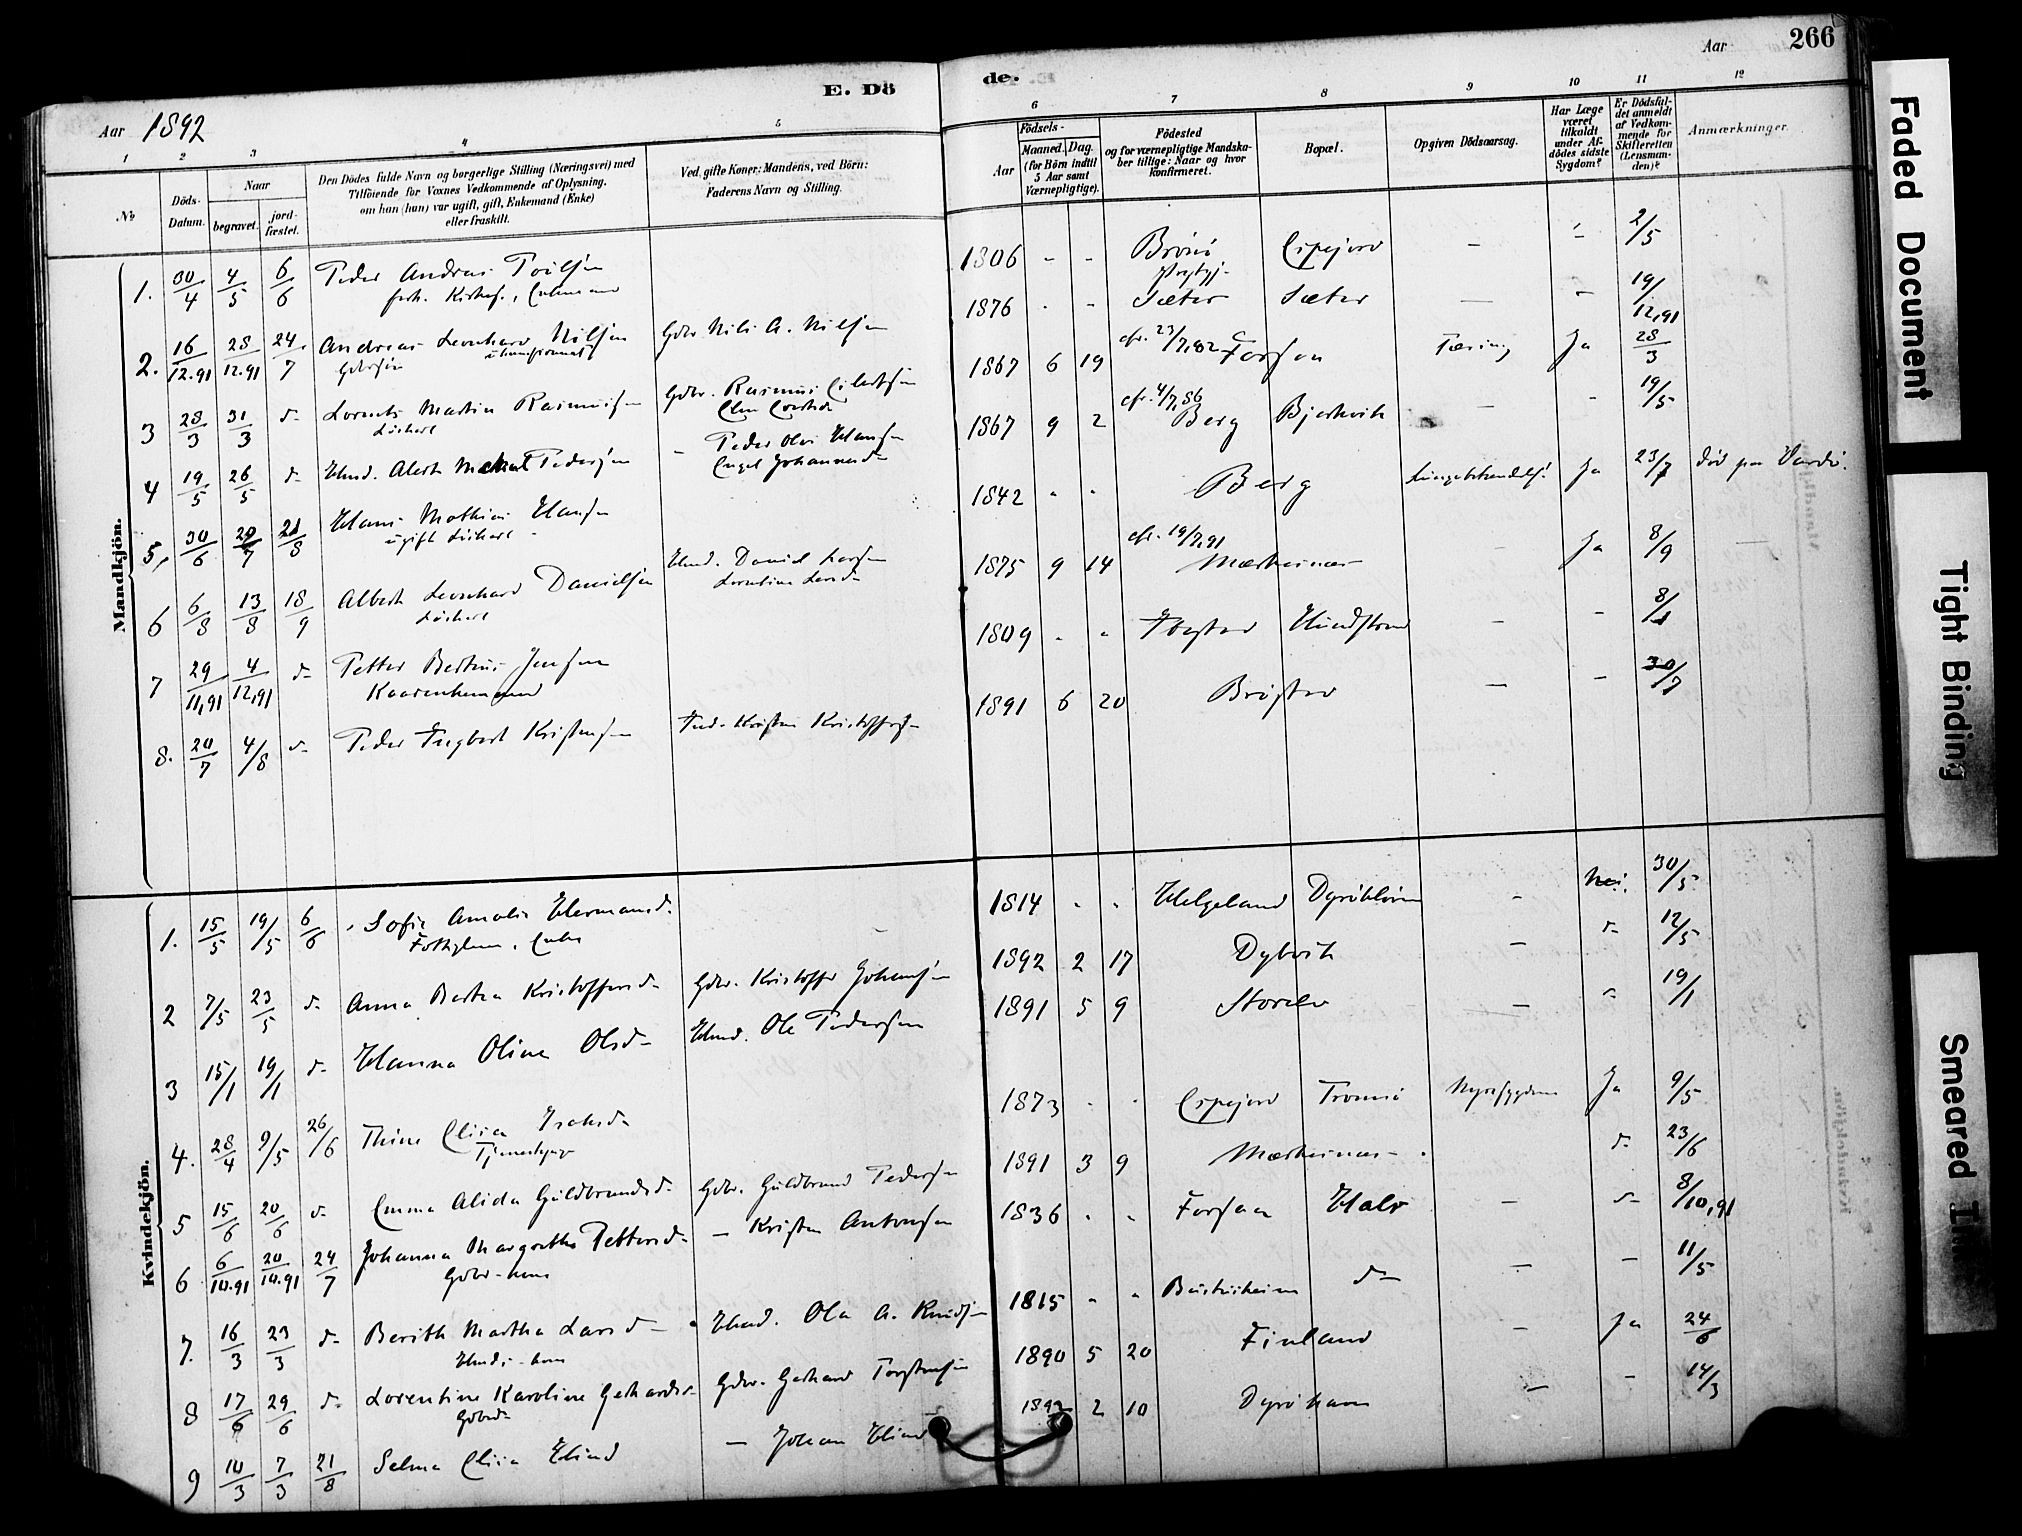 Aar 1892
E. Dö
de.
Aar
266
1
2
3
4
5
6
7
8
9
10
11
12
No
Döds-
Datum.
Naar
begravet.
jord-
fæstet.
Den Dödes fulde Navn og borgerlige Stilling (Næringsvei) med
Tilföiende for Voxnes Vedkommende af Oplysning,
om han (hun) var ugift, gift, Enkemand (Enke)
eller fraskilt.
Ved gifte Koner: Mandens, ved Börn:
Faderens Navn og Stilling.
Födsels-
Aar
Maaned.
Dag.
(for Börn indtil
5 Aar samt
Værnepligtige).
Födested
og for værnepligtige Mandska-
ber tillige: Naar og hvor
konfirmeret.
Bopæl.
Opgiven Dödsaarsag.
Har Læge
været
tilkaldt
under Af-
dödes sidste
Sygdom?
Er Dödsfal-
det anmeldt
af Vedkom-
mende for
Skifteretten
(Lensman-
den)?
Anmærkninger.
Mandkjön.
1. 30/4 4/5 6/6 Peder Andreas 1806 - - Brönö Espejord - - 2/5
2. 16/12.91 28/12.91 24/7 Andreas Leonhard Nilsen Gdbr Nils A. Nilsen 1876 - - Sæter Sæter - - 19/12,91
3 28/3 31/3 d- Lorents Martin Rasmussen Gdbr. Rasmus 1867 6 19 cfr. 23/7,82 Forsaa Tæring Ja 28/3
Löskarl
4 19/5 26/5 d- Hmd. Albert Mekal Pedersen - Peder Olai Hansen 1867 9 2 cfr. 4/7,86 Berg Bjerkvik - - 19/5
Engel Johannesd-
5, 30/6 20/7 21/8 Hans Mathias Hansen 1842 - - Berg Ja 23/7 död paa Vardö.
ugift Löskarl
6 6/8 13/8 18/9 Albert Leonhard Danielsen Hmd. Daniel Larsen 1875 9 14 cfr. 19/7,91 Mærkesnæs - Ja 8/9
Löskarl
7 29/11,91 4/12,91 d- Petter Bertheus Jensen 1809 - - Ibestad Hundstrand - - 8/1
Kaarenkemand
8. 20/7 4/8 d- Peder Ingbert Kristensen Ind. Kristen Kristoffers- 1891 6 20 Bröstad - - 30/7
Kvindekjön.
1. 15/5 19/5 6/6 Sofie Amalie Hermansd. 1814 - - Helgeland - Nei. 30/5
2 7/5 23/5 d- Anna Bertea Kristoffersd- Gdbr. Kristoffer Johansen 1892 2 17 Dybvik - d- 12/5
3 15/1 19/1 d- Hanna Olina Olsd- Hmd. Ole Pedersen 1891 5 9 Storelv - d- 19/1
4. 28/4 9/5 26/6 Thine Elisa Isaksd- 1873 - - Espejord Tromsö Nyresygdom Ja 9/5
Tjenestepige
5 15/6 20/6 d- Emma Alida Guldbrandsd- Gdbr. Guldbrand Pedersen 1891 3 9 Mærkesnæs - d- 23/6
6 6/10.91 20/10.91 24/7 Johanna Margrethe Pettersd- - Kristen Antonsen 1836 - - Forsaa Halv - d- 8/10,91
Gdbr-kone
7. 16/3 23/3 d- Berith Martha Larsd- Hmd. Ole A. Knudsen 1815 - - d- - - 11/5
Hmds-kone
8 17/6 29/6 d- Lorentine Karoline Gerhardsd- Gdbr. Gerhard Torstensen 1890 5 20 Finland - Ja 24/6
9 10/3 7/3 21/8 Selma Elisa Hind - Johan Hind 1892 2 10 Dyröhavn - - 14/3
Faded Document
Tight Binding
Smeared Ink